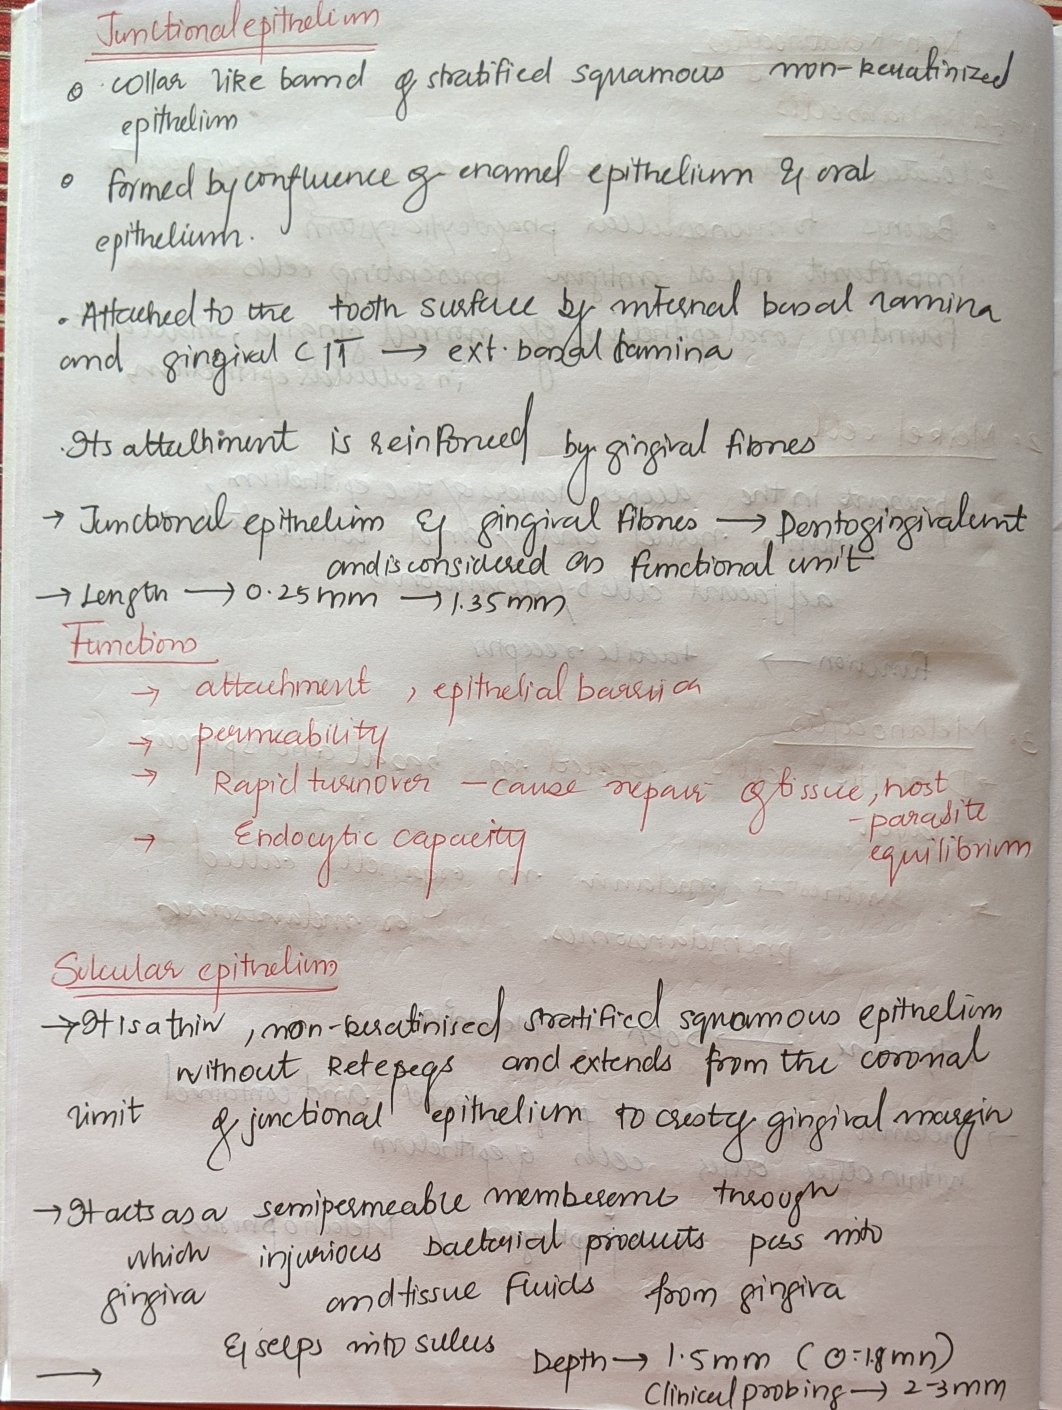 Junctional epithelium
collar like band of stratified squamous non-keratinized
epithelium
formed by confluence of enamel epithelium & oral
epithelium.
. Attached to the tooth surface by internal basal lamina
and gingival CIT → ext. basal lamina
. Its attachment is reinforced by gingival fibres
→ Junctional epithelim & gingival fibres → Dentogingival unit
and is considered as functional unit
→ Length → 0.25mm → 1.35mm
Functions
→ attachment , epithelial barrier
→ permeability
→ Rapid turnover - cause repair of tissue, host
- parasite
→ Endocytic capacity
equilibrium
Sulcular epithelium
→ It is a thin , non-keratinised stratified squamous epithelium
without Retepegs and extends from the coronal
limit of junctional epithelium to crest of gingival margin
→ It acts as a semipermeable membrane through
which injurious bacterial products pass into
gingiva and tissue fluids from gingiva
& seeps into sulcus
Depth → 1.5mm (0-1.8mn)
→
Clinical probing → 2-3mm